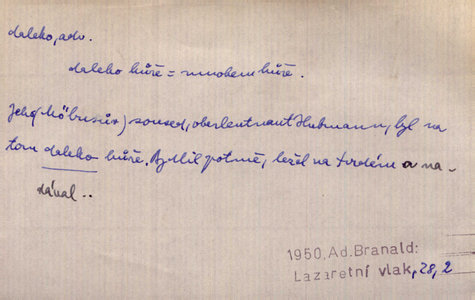 daleko, adv.
daleko hůře = mnohem hůře.
Jeho (Möbusův) soused, oberleutnant Hutmann, byl na
tom daleko hůře. Bydlil potmě, ležel na tvrdém a na-
dával..
1950, Ad. Branald:
Lazaretní vlak, 28, 2